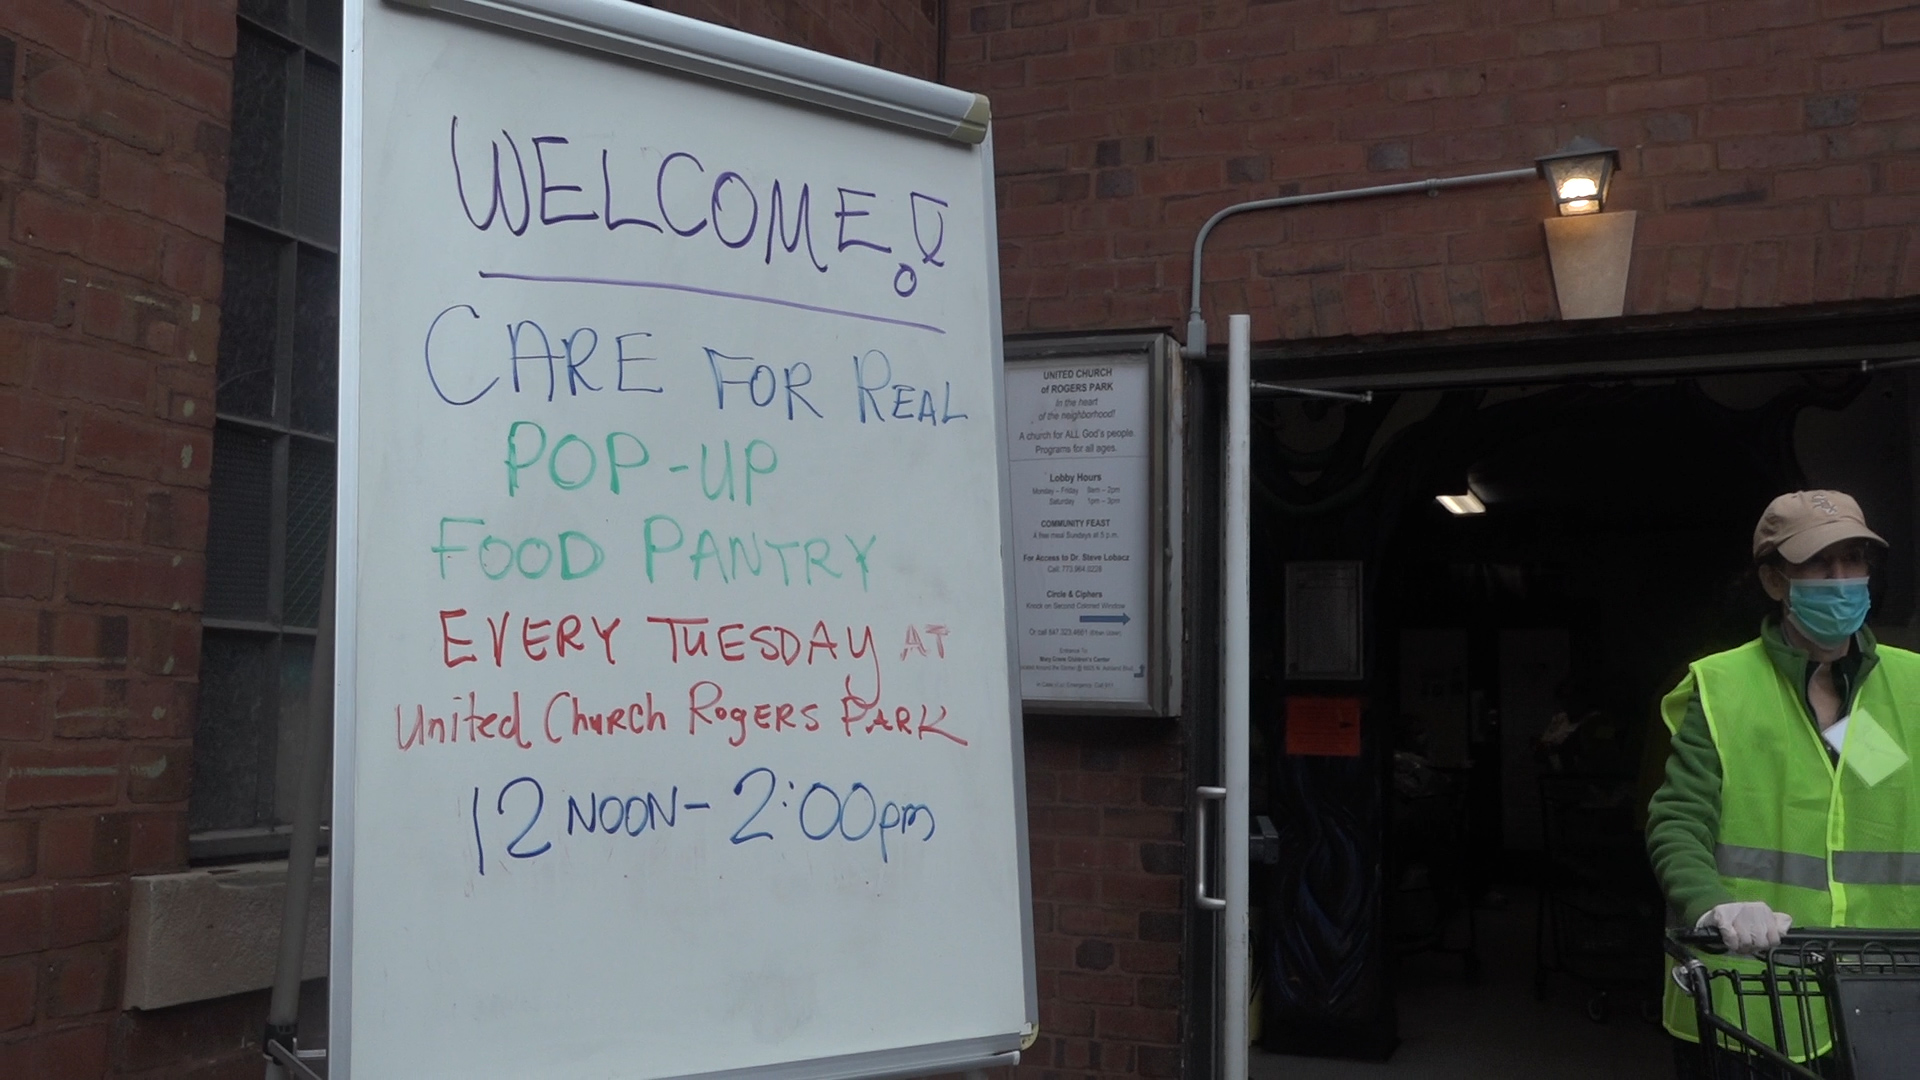 WELCOME!
CARE FOR REAL
POP-UP
FOOD PANTRY
EVERY TUESDAY AT
United Church Rogers Park
12 NOON - 2:00pm
UNITED CHURCH
of ROGERS PARK
In the heart
of the neighborhood!
A church for ALL God's people.
Programs for all ages.
Lobby Hours
Monday – Friday 9am – 2pm
Saturday 1pm – 3pm
COMMUNITY FEAST
A free meal Sundays at 5 p.m.
For Access to Dr. Steve Lobacz
Call: 773.964.0228
Circle & Ciphers
Knock on Second Colored Window
Or call 847.323.4661
Entrance To
Mary Crane Children's Center
In Case of an Emergency, Call 911